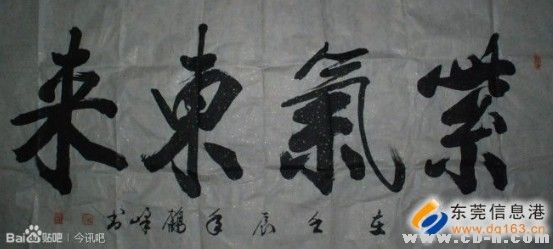 紫氣東来
在壬辰年鶴峰书
东莞信息港
www.dg163.cn
Bai贴吧 | 今讯吧